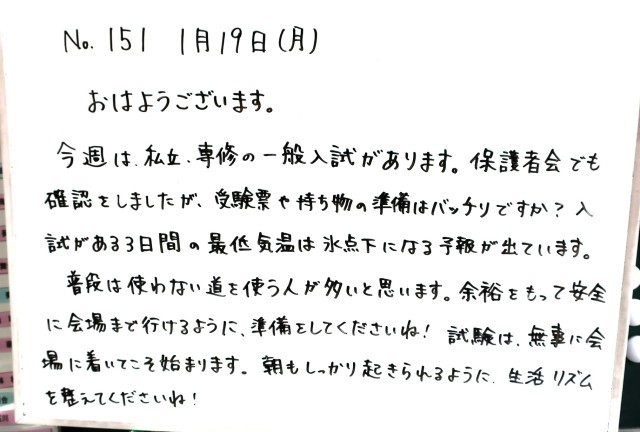 No. 151 1月19日(月)
おはようございます。
今週は、私立、専修の一般入試があります。保護者会でも
確認をしましたが、受験票や持ち物の準備はバッチリですか?入
試がある3日間の最低気温は氷点下になる予報が出ています。
普段は使わない道を使う人が多いと思います。余裕をもって安全
に会場まで行けるように、準備をしてくださいね!試験は、無事に会
場に着いてこそ始まります。朝もしっかり起きられるように、生活リズム
を整えてくださいね!